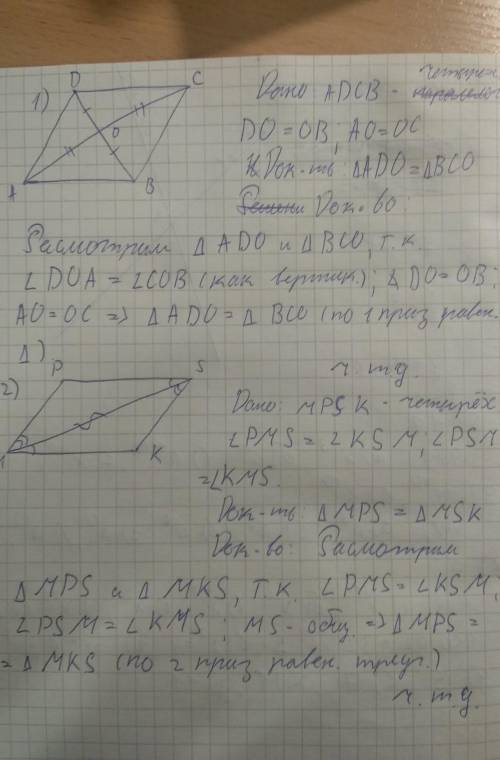 1)
D
C
O
A
B
Дано ADCB - четырёх
DO = OB; AO = OC
Док-ть: ΔADO = ΔBCO
Док-во:
Расмотрим Δ ADO и ΔBCO, т.к.
∠DOA = ∠COB (как вертик.); DO = OB;
AO = OC => Δ ADO = Δ BCO (по 1 приз. равен.
Δ)
ч. т д.
2)
P
S
M
K
Дано: MPSK - четырёх
∠PMS = ∠KSM; ∠PSM
= ∠KMS.
Док-ть: ΔMPS = ΔMSK
Док-во: Расмотрим
ΔMPS и Δ MKS, т.к. ∠PMS = ∠KSM;
∠PSM = ∠KMS; MS - общ. => ΔMPS =
= ΔMKS (по 2 приз. равен. треуг.)
ч. т. д.